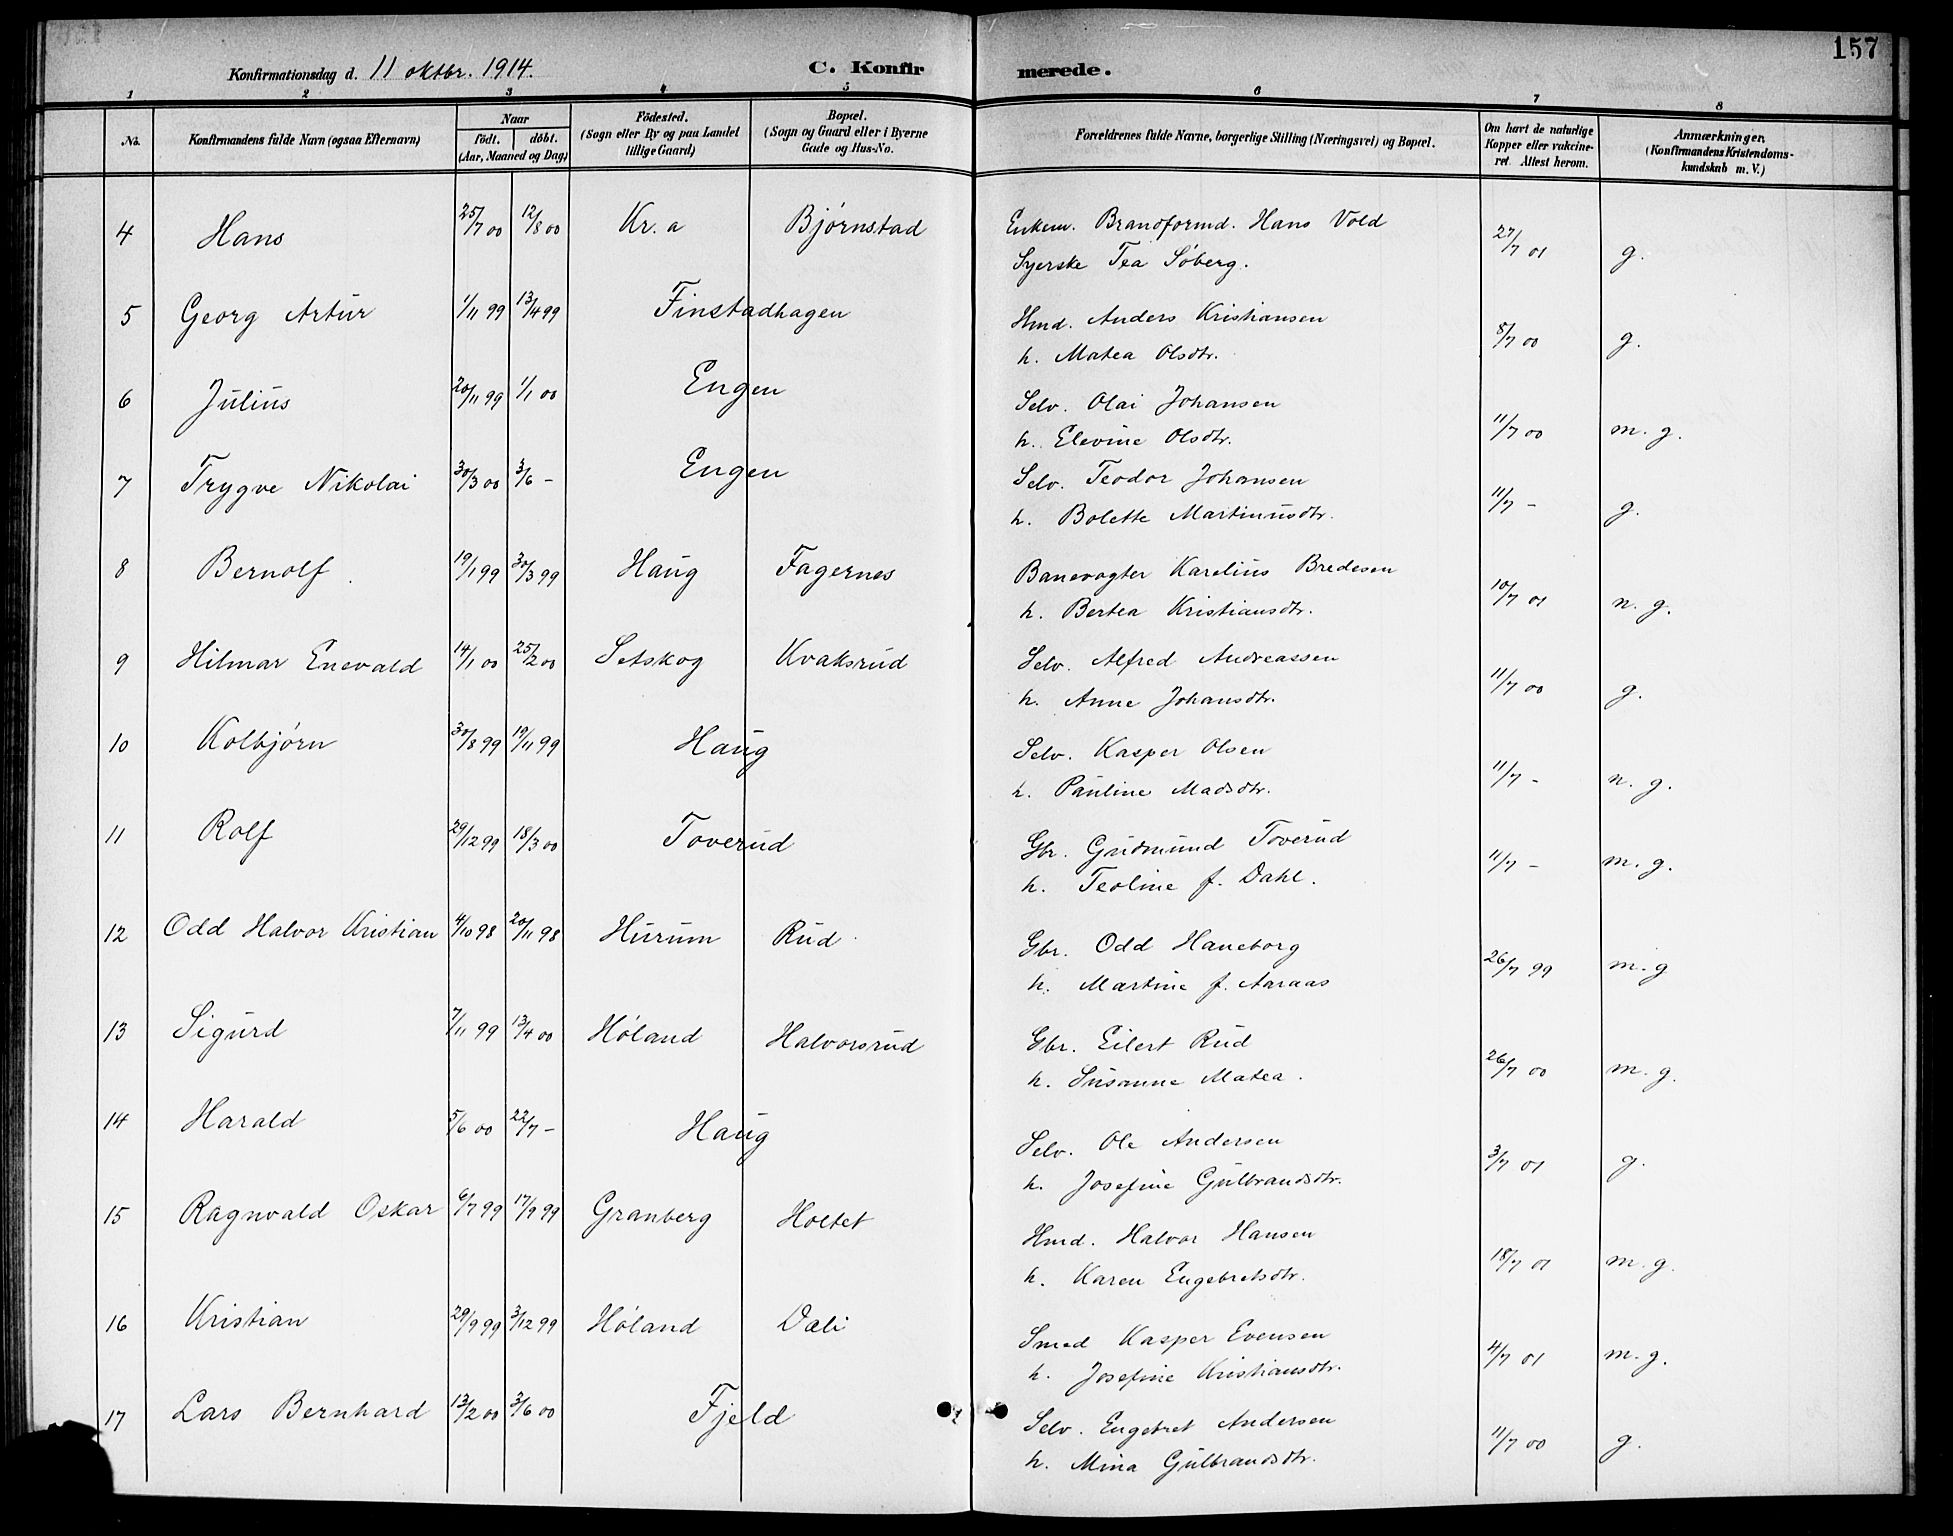 157
Konfirmationsdag d. 11 oktbr. 1914. C. Konfirmerede.
1 2 3 4 5 6 7 8
No. Konfirmandens fulde Navn (ogsaa Efternavn) Naar født. døbt. (Aar, Maaned og Dag) Fødested. (Sogn eller By og paa Landet tillige Gaard) Bopæl. (Sogn og Gaard eller i Byerne Gade og Hus-No. Forældrenes fulde Navne, borgerlige Stilling (Næringsvei) og Bopæl. Om havt de naturlige Kopper eller vakcineret. Attest herom. Anmærkninger. (Konfirmandens Kristendomskundskab m. V.)
4 Hans 25/7 00 12/8 00 Kr.a Bjørnstad Enkem. Brandformd. Hans Vold 27/7 01 g.
Syerske Tea Søberg.
5 Georg Artur 1/11 99 13/4 99 Finstadhagen Hmd. Anders Kristiansen 8/7 00 g.
h. Matea Olsdtr.
6 Julius 20/11 99 1/1 00 Engen Selv. Olai Johansen 11/7 00 m. g.
h. Elevine Olsdtr.
7 Trygve Nikolai 30/3 00 3/6 - Engen Selv. Teodor Johansen 11/7 - g.
h. Bolette Martinusdtr.
8 Bernolf 19/1 99 30/3 99 Haug Fagernes Banevogter Karelius Bredesen 10/7 01 n. g.
h. Bertea Kristiansdtr.
9 Hilmar Enevald 14/1 00 25/2 00 Setskog Kvaksrud Selv. Alfred Andreassen 11/7 00 g.
h. Anne Johansdtr.
10 Kolbjørn 30/8 99 19/11 99 Haug Selv. Kasper Olsen 11/7 - n. g.
h. Pauline Madsdtr.
11 Rolf 29/12 99 18/3 00 Toverud Gbr. Gudmund Toverud 11/7 - m. g.
h. Teoline f. Dahl.
12 Odd Halvor Kristian 4/10 98 20/11 98 Hurum Rud Gbr. Odd Haneborg 26/7 99 m. g
h. Martine f. Aaraas
13 Sigurd 7/11 99 13/4 00 Høland Halvorsrud Gbr. Eilert Rud 26/7 00 m. g.
h. Susanne Matea.
14 Harald 5/6 00 22/7 - Haug Selv. Ole Andersen 3/7 01 g.
h. Josefine Gulbrandsdtr.
15 Ragnvald Oskar 6/7 99 17/9 99 Granberg Holtet Hmd. Halvor Hansen 18/7 01 m. g.
h. Karen Engebretsdtr.
16 Kristian 29/9 99 3/12 99 Høland Dali Smed Kasper Evensen 4/7 01 m. g.
h. Josefine Kristiansdtr.
17 Lars Bernhard 13/2 00 3/6 00 Fjeld Selv. Engebret Andersen 11/7 00 g.
h. Mina Gulbrandsdtr.